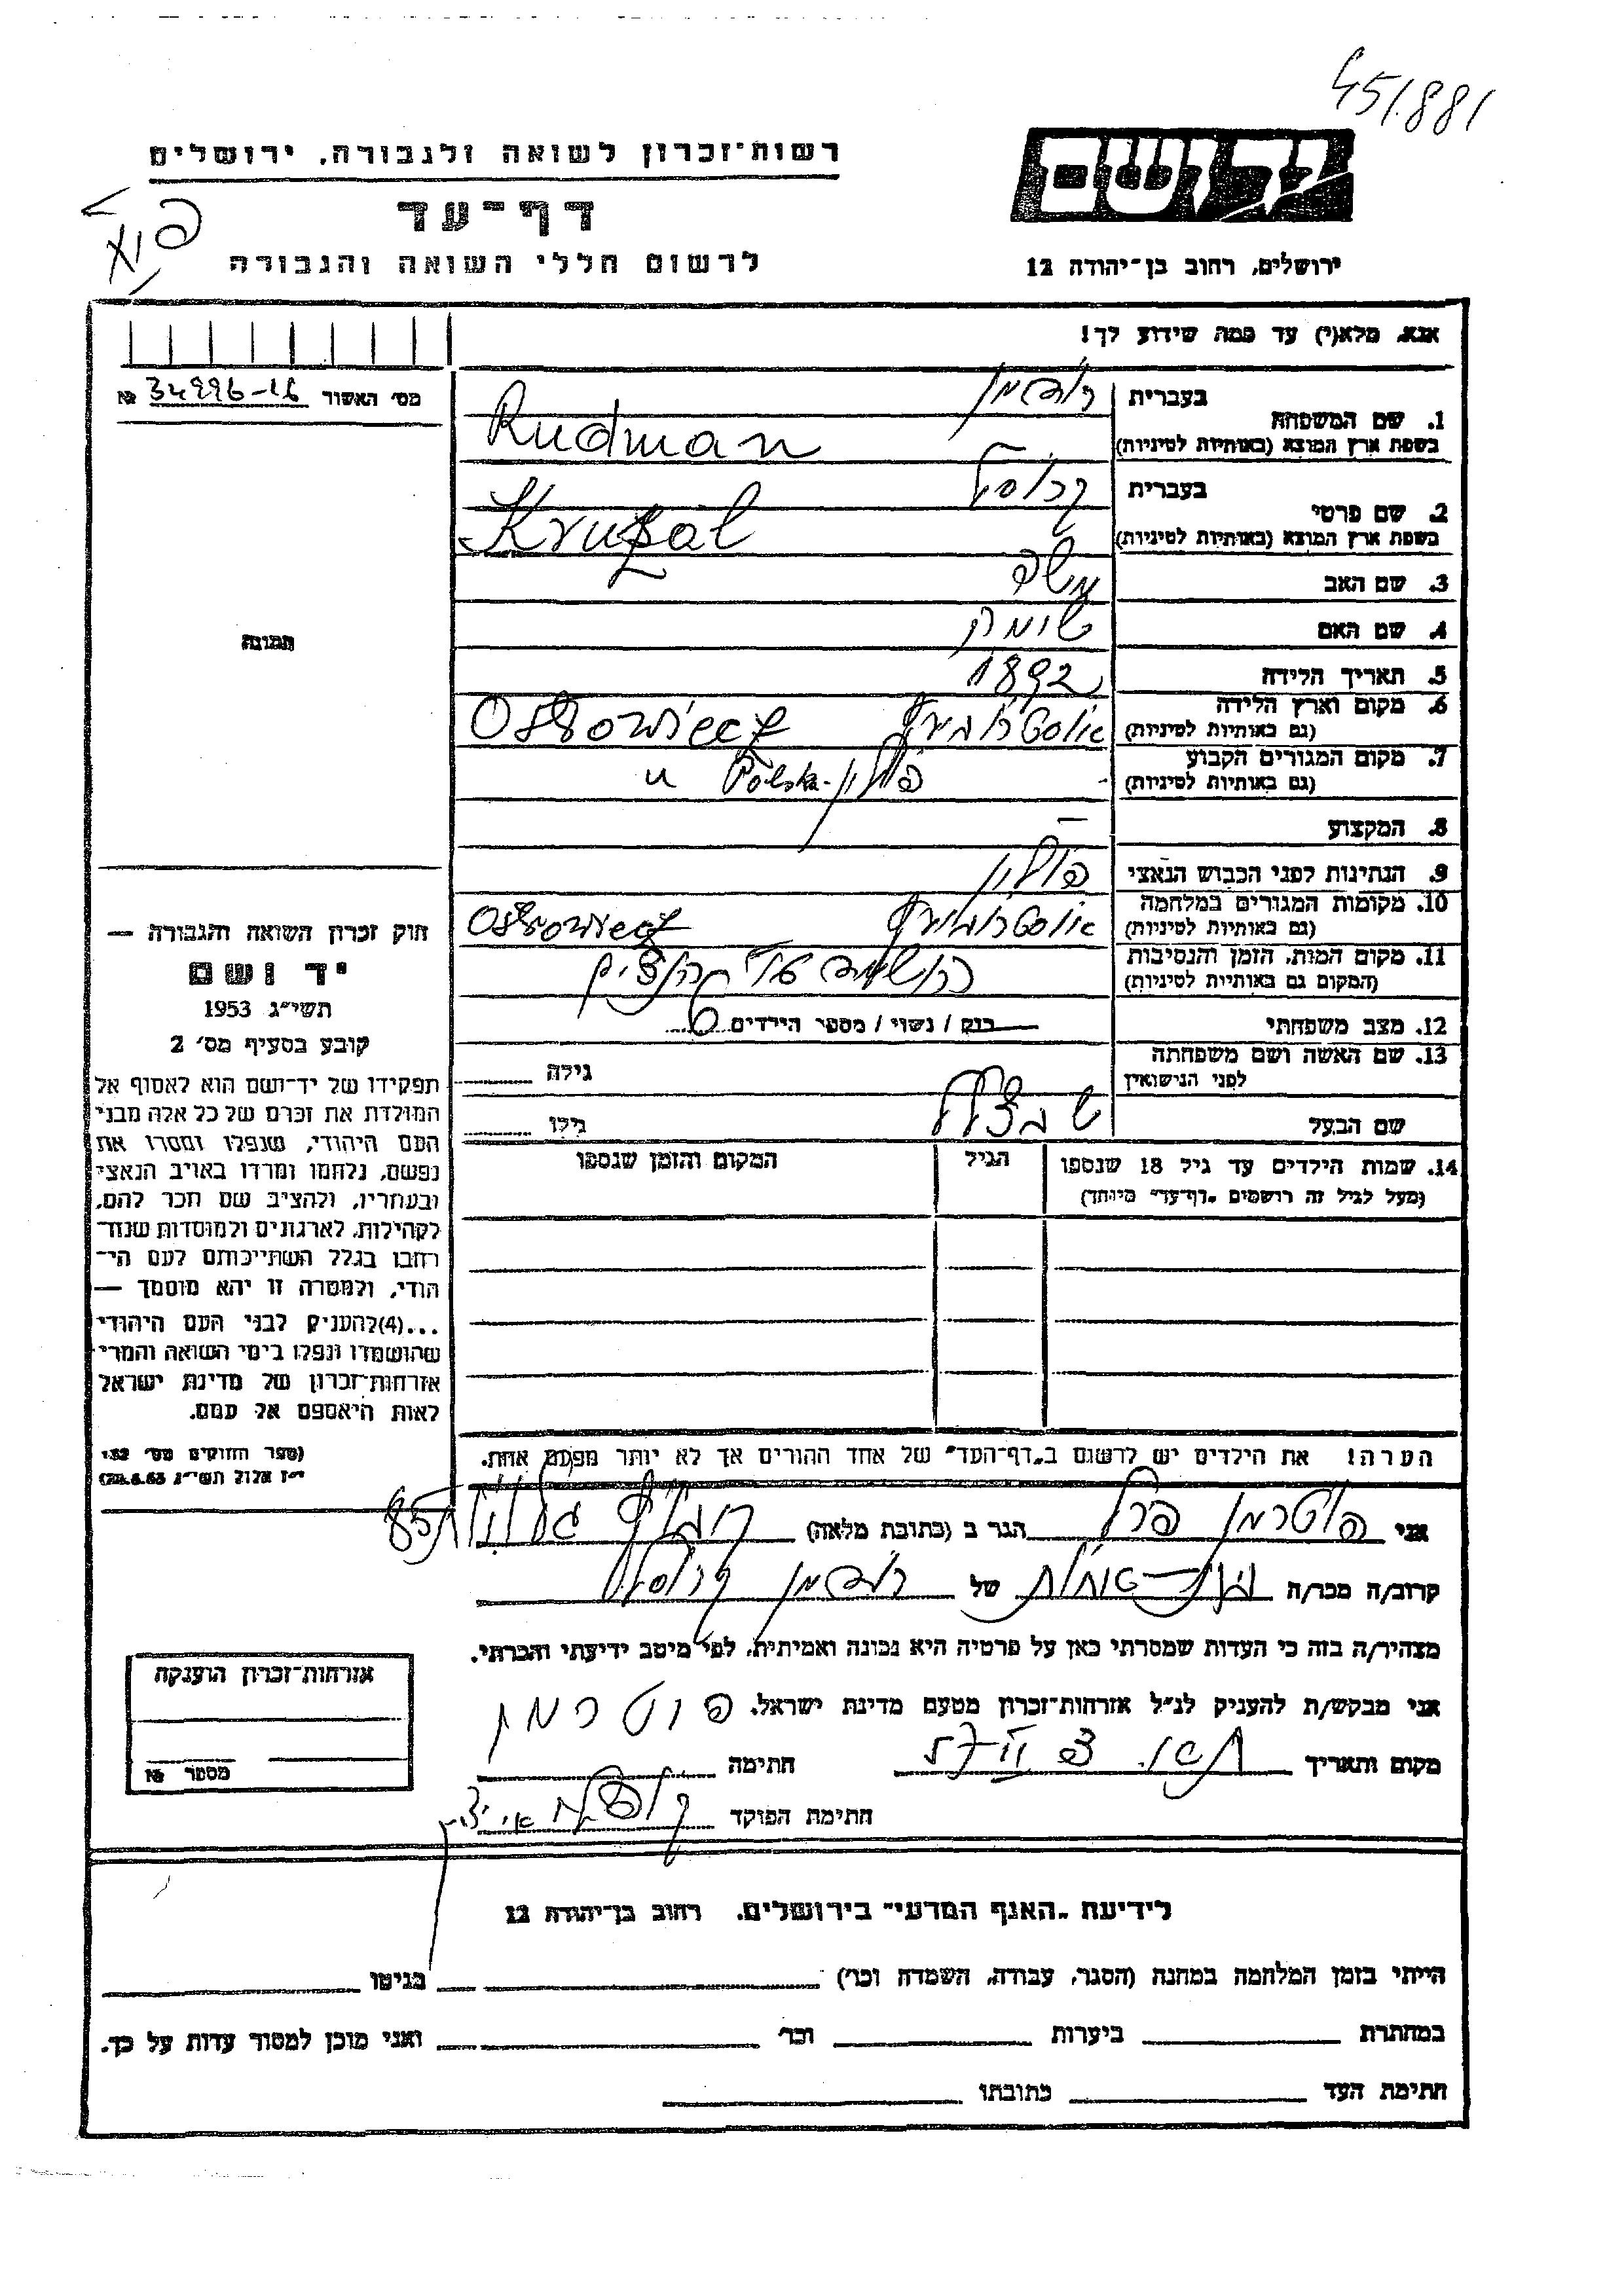 451.881
רשות-זכרון לשואה ולגבורה, ירושלים
יד ושם
דף-עד
לרשום חללי השואה והגבורה
ירושלים, רחוב בן-יהודה 12
אנא, מלא(י) עד כמה שידוע לך!
מס׳ האשור 34996-16 №
1. שם המשפחה
בעברית רודמן
בשפת ארץ המוצא (באותיות לטיניות) Rudman
2. שם פרטי
בעברית
בשפת ארץ המוצא (באותיות לטיניות)
3. שם האב משה
4. שם האם
5. תאריך הלידה 1892
6. מקום וארץ הלידה
(גם באותיות לטיניות) Ostrowiecz
7. מקום המגורים הקבוע
(גם באותיות לטיניות) פולין - Polska
8. המקצוע —
9. הנתינות לפני הכבוש הנאצי פולין
10. מקומות המגורים במלחמה
(גם באותיות לטיניות) Ostrowiecz
11. מקום המות, הזמן והנסיבות
(המקום גם באותיות לטיניות)
12. מצב משפחתי רווק / נשוי / מספר הילדים 6
13. שם האשה ושם משפחתה
לפני הנישואין גילה
שם הבעל גילו
14. שמות הילדים עד גיל 18 שנספו הגיל המקום והזמן שנספו
(מעל לגיל זה רושמים „דף-עד״ מיוחד)
הערה! את הילדים יש לרשום ב„דף-העד״ של אחד ההורים אך לא יותר מפעם אחת.
תמונה
חוק זכרון השואה והגבורה —
יד ושם
תשי״ג 1953
קובע בסעיף מס׳ 2
תפקידו של יד-ושם הוא לאסוף אל
המולדת את זכרם של כל אלה מבני
העם היהודי, שנפלו ומסרו את
נפשם, נלחמו ומרדו באויב הנאצי
ובעוזריו, ולהציב שם וזכר להם,
לקהילות, לארגונים ולמוסדות שנח-
רבו בגלל השתייכותם לעם הי-
הודי, ולמטרה זו יהא מוסמך —
...(4) להעניק לבני העם היהודי
שהושמדו ונפלו בימי השואה והמרי
אזרחות-זכרון של מדינת ישראל
לאות היאספם אל עמם.
(ספר החוקים מס׳ 132
י״ז אלול תשי״ג 28.8.53)
אני פוטרמן פרל הגר ב (כתובת מלאה)
קרוב/ה מכר/ה של רודמן
מצהיר/ה בזה כי העדות שמסרתי כאן על פרטיה היא נכונה ואמיתית, לפי מיטב ידיעתי והכרתי.
אני מבקש/ת להעניק לנ״ל אזרחות-זכרון מטעם מדינת ישראל.
מקום ותאריך חתימה פוטרמן
חתימת הפוקד
אזרחות-זכרון הוענקה
מספר №
לידיעת „האגף המדעי״ בירושלים, רחוב בן-יהודה 12
הייתי בזמן המלחמה במחנה (הסגר, עבודה, השמדה וכו׳) בגיטו
במחתרת ביערות וכו׳ ואני מוכן למסור עדות על כך.
חתימת העד כתובתו